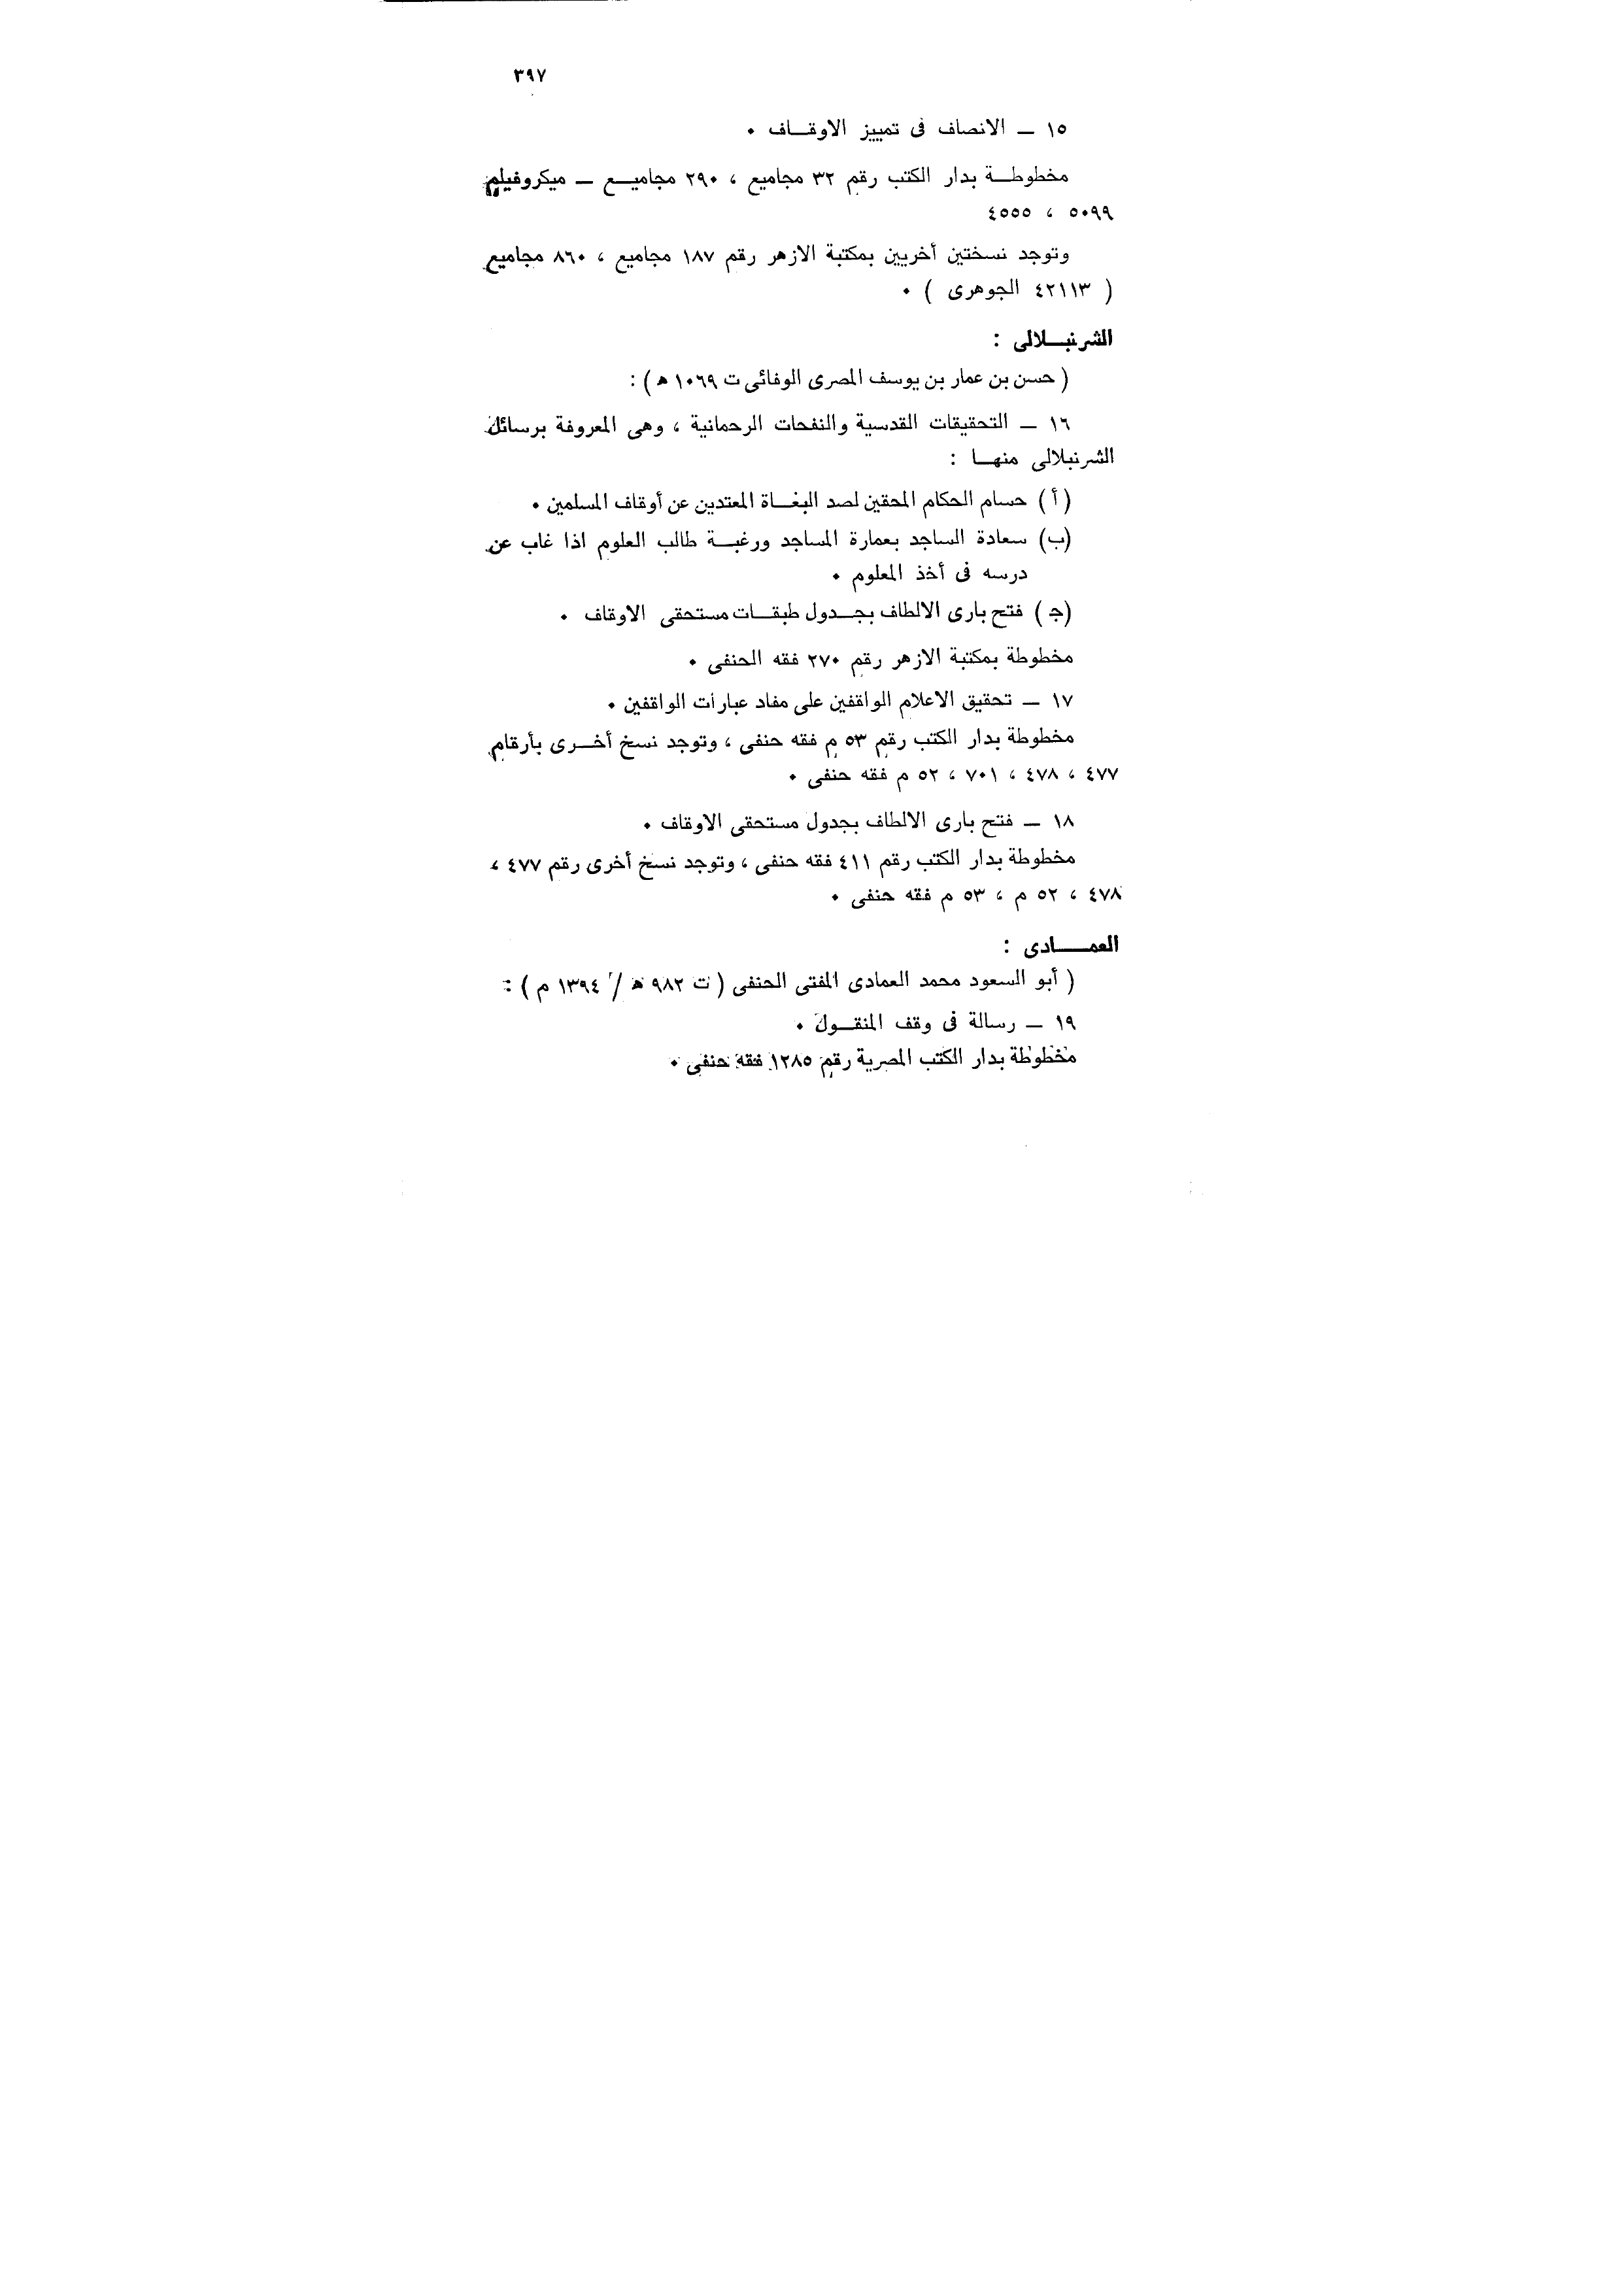 ٣٩٧
١٥ ــ الانصاف فى تمييز الاوقــاف .
مخطوطــة بدار الكتب رقم ٣٢ مجاميع ، ٢٩٠ مجاميــع ــ ميكروفيلم
٥٠٩٩ ، ٤٥٥٥
وتوجد نسختين أخريين بمكتبة الازهر رقم ١٨٧ مجاميع ، ٨٦٠ مجاميع
( ٤٢١١٣ الجوهرى ) .
الشرنبــلالى :
( حسن بن عمار بن يوسف المصرى الوفائى ت ١٠٦٩ هـ ) :
١٦ ــ التحقيقات القدسية والنفحات الرحمانية ، وهى المعروفة برسائل
الشرنبلالى منهــا :
( أ ) حسام الحكام المحقين لصد البغــاة المعتدين عن أوقاف المسلمين .
(ب) سعادة الساجد بعمارة المساجد ورغبــة طالب العلوم اذا غاب عن
درسه فى أخذ المعلوم .
(جـ ) فتح بارى الالطاف بجــدول طبقــات مستحقى الاوقاف .
مخطوطة بمكتبة الازهر رقم ٢٧٠ فقه الحنفى .
١٧ ــ تحقيق الاعلام الواقفين على مفاد عبارات الواقفين .
مخطوطة بدار الكتب رقم ٥٣ م فقه حنفى ، وتوجد نسخ أخــرى بأرقام
٤٧٧ ، ٤٧٨ ، ٧٠١ ، ٥٢ م فقه حنفى .
١٨ ــ فتح بارى الالطاف بجدول مستحقى الاوقاف .
مخطوطة بدار الكتب رقم ٤١١ فقه حنفى ، وتوجد نسخ أخرى رقم ٤٧٧ ،
٤٧٨ ، ٥٢ م ، ٥٣ م فقه حنفى .
العمــــادى :
( أبو السعود محمد العمادى المفتى الحنفى ( ت ٩٨٢ هـ / ١٣٩٤ م ) :
١٩ ــ رسالة فى وقف المنقــول .
مخطوطة بدار الكتب المصرية رقم ١٢٨٥ فقه حنفى .